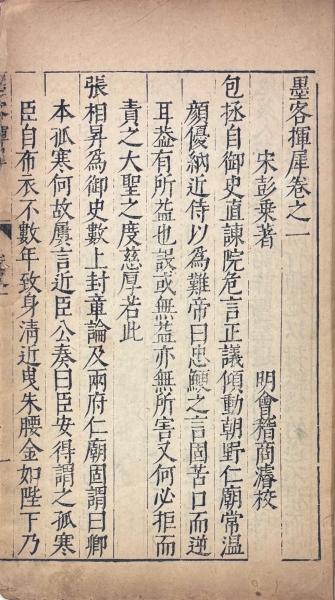 墨客揮犀卷之一
宋彭乘著　明會稽商濬校
包拯自御史直諫院危言正議傾動朝野仁廟常溫
顏優納近侍以為難帝曰忠鯁之言固苦口而逆
耳葢有所益也設或無益亦無所害又何必拒而
責之大聖之度慈厚若此
張相昇為御史數上封章論及兩府仁廟固謂曰卿
本孤寒何故屢言近臣公奏曰臣安得謂之孤寒
臣自布衣不數年致身清近曳朱腰金如陛下乃